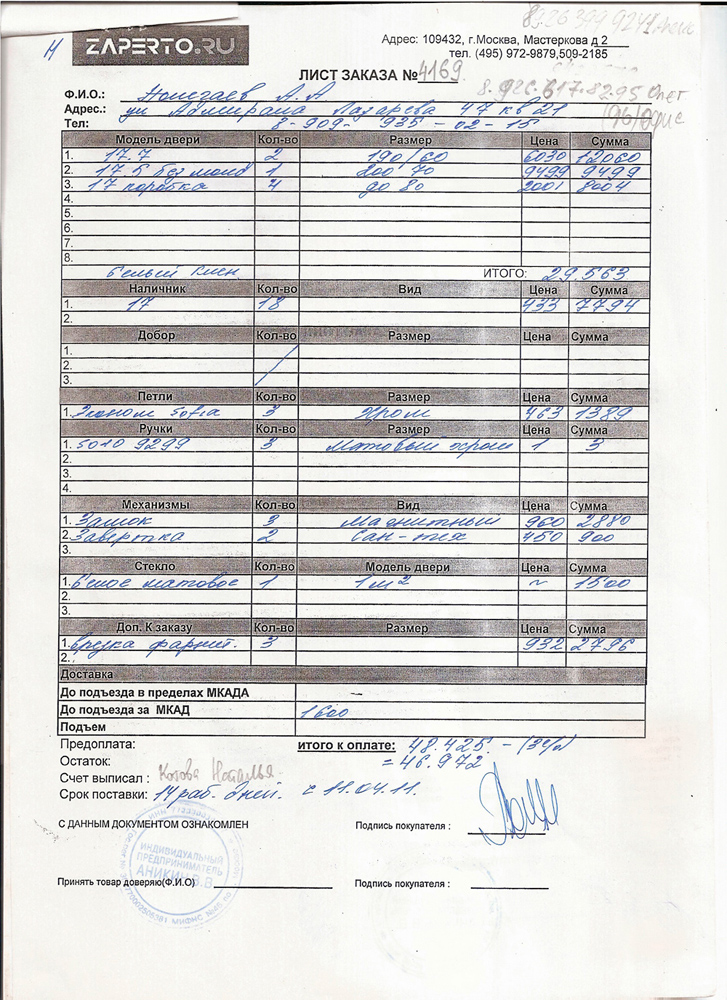 ZAPERTO.RU
Адрес: 109432, г.Москва, Мастеркова д 2
тел. (495) 972-9879,509-2185
ЛИСТ ЗАКАЗА № 4169
8.926.617.8295 Олег
Ф.И.О.: А.А
Адрес.: ул Адмирала Лазарева 47 кв 21
Тел: 8-909-935-02-15
Модель двери Кол-во Размер Цена Сумма
1. 17.7 2 190/60 6030 12060
2. 17.5 без 1 200 70 9499 9499
3. 17 коробка 4 до 80 2001 8004
4.
5.
6.
7.
8.
белый ИТОГО: 29.563
Наличник Кол-во Вид Цена Сумма
1. 17 18 433 7794
2.
Добор Кол-во Размер Цена Сумма
1.
2.
3.
Петли Кол-во Размер Цена Сумма
1. Эконом Sofia 3 Хром 463 1389
Ручки Кол-во Размер Цена Сумма
1. 5010 9299 3 Матовый хром 1 3
2.
3.
4.
Механизмы Кол-во Вид Цена Сумма
1. Замок 3 Магнитный 960 2880
2. Завертка 2 Сан-тех 450 900
3.
Стекло Кол-во Модель двери Цена Сумма
1. белое матовое 1 1 м2 ~ 1500
2.
3.
Доп. К заказу Кол-во Размер Цена Сумма
1. врезка фарнит. 3 932 2796
2.
Доставка
До подъезда в пределах МКАДА
До подъезда за МКАД 1600
Подъем
Предоплата: итого к оплате: 48.425 - (3%)
Остаток: = 46.972
Счет выписал : Котова Наталья
Срок поставки: 14 раб. дней. с 11.04.11.
С ДАННЫМ ДОКУМЕНТОМ ОЗНАКОМЛЕН Подпись покупателя :
ИНДИВИДУАЛЬНЫЙ
ПРЕДПРИНИМАТЕЛЬ
АНИКИН В.В
Принять товар доверяю(Ф.И.О) Подпись покупателя :